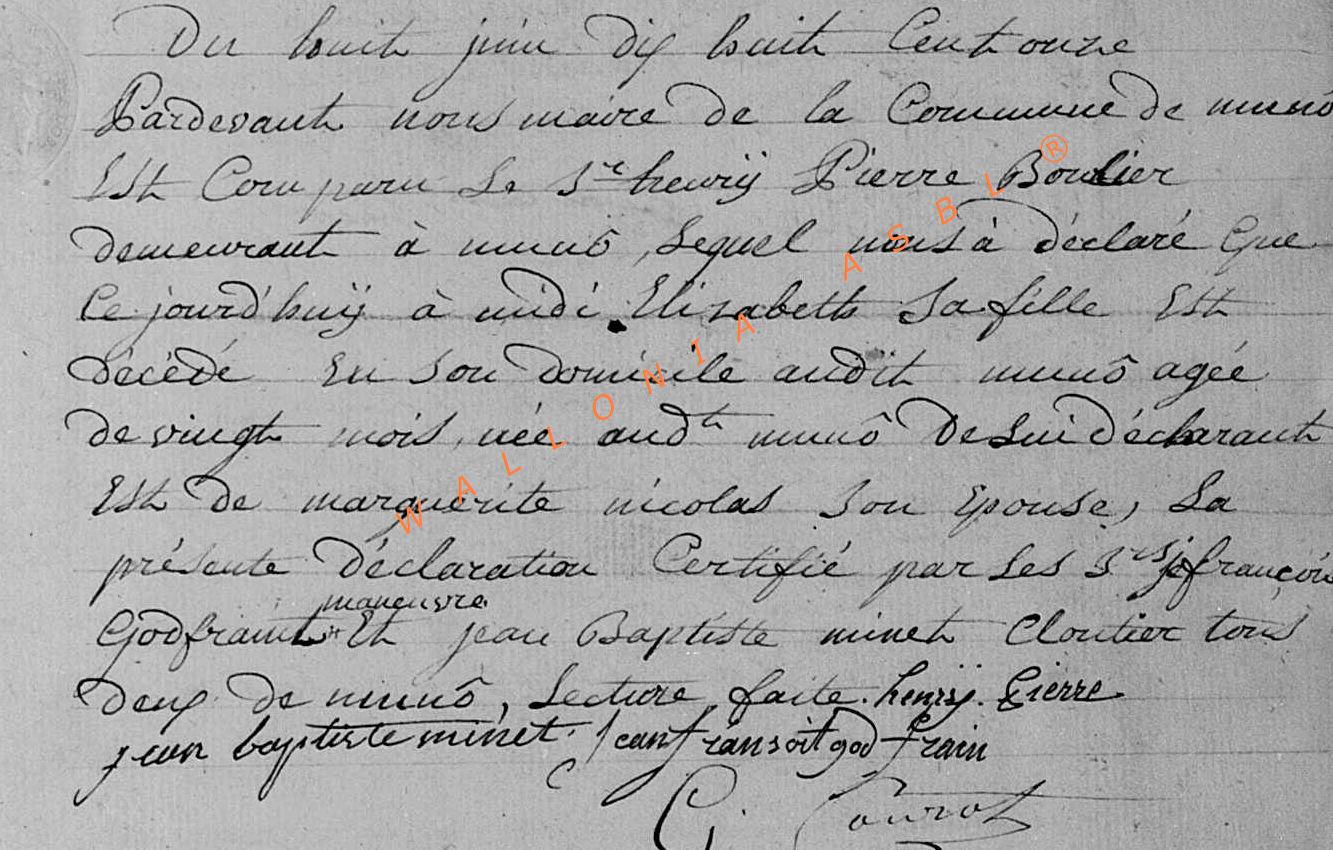 Du huit juin dix huit Cent onze
Pardevant nous maire de la Commune de munô
Est Comparu Le Sr henrÿ Pierre Boulier
demeurant à munô, Lequel nous à déclaré Que
Ce jourd'huÿ à midi Elizabeth Sa fille Est
décédé En Son domicile audit munô agée
de vingt mois, née audt munô De Lui Déclarant
Est de marguerite nicolas Son Epouse, La
présente Déclaration Certifié par Les Srs jn françois
manœuvre
Godfraint * Et jean Baptiste minet Cloutier tous
deux de munô, Lecture faite. henrÿ. Pierre
jean baptiste minet. jean fransoit god frain
WALLONIA ASBL ®